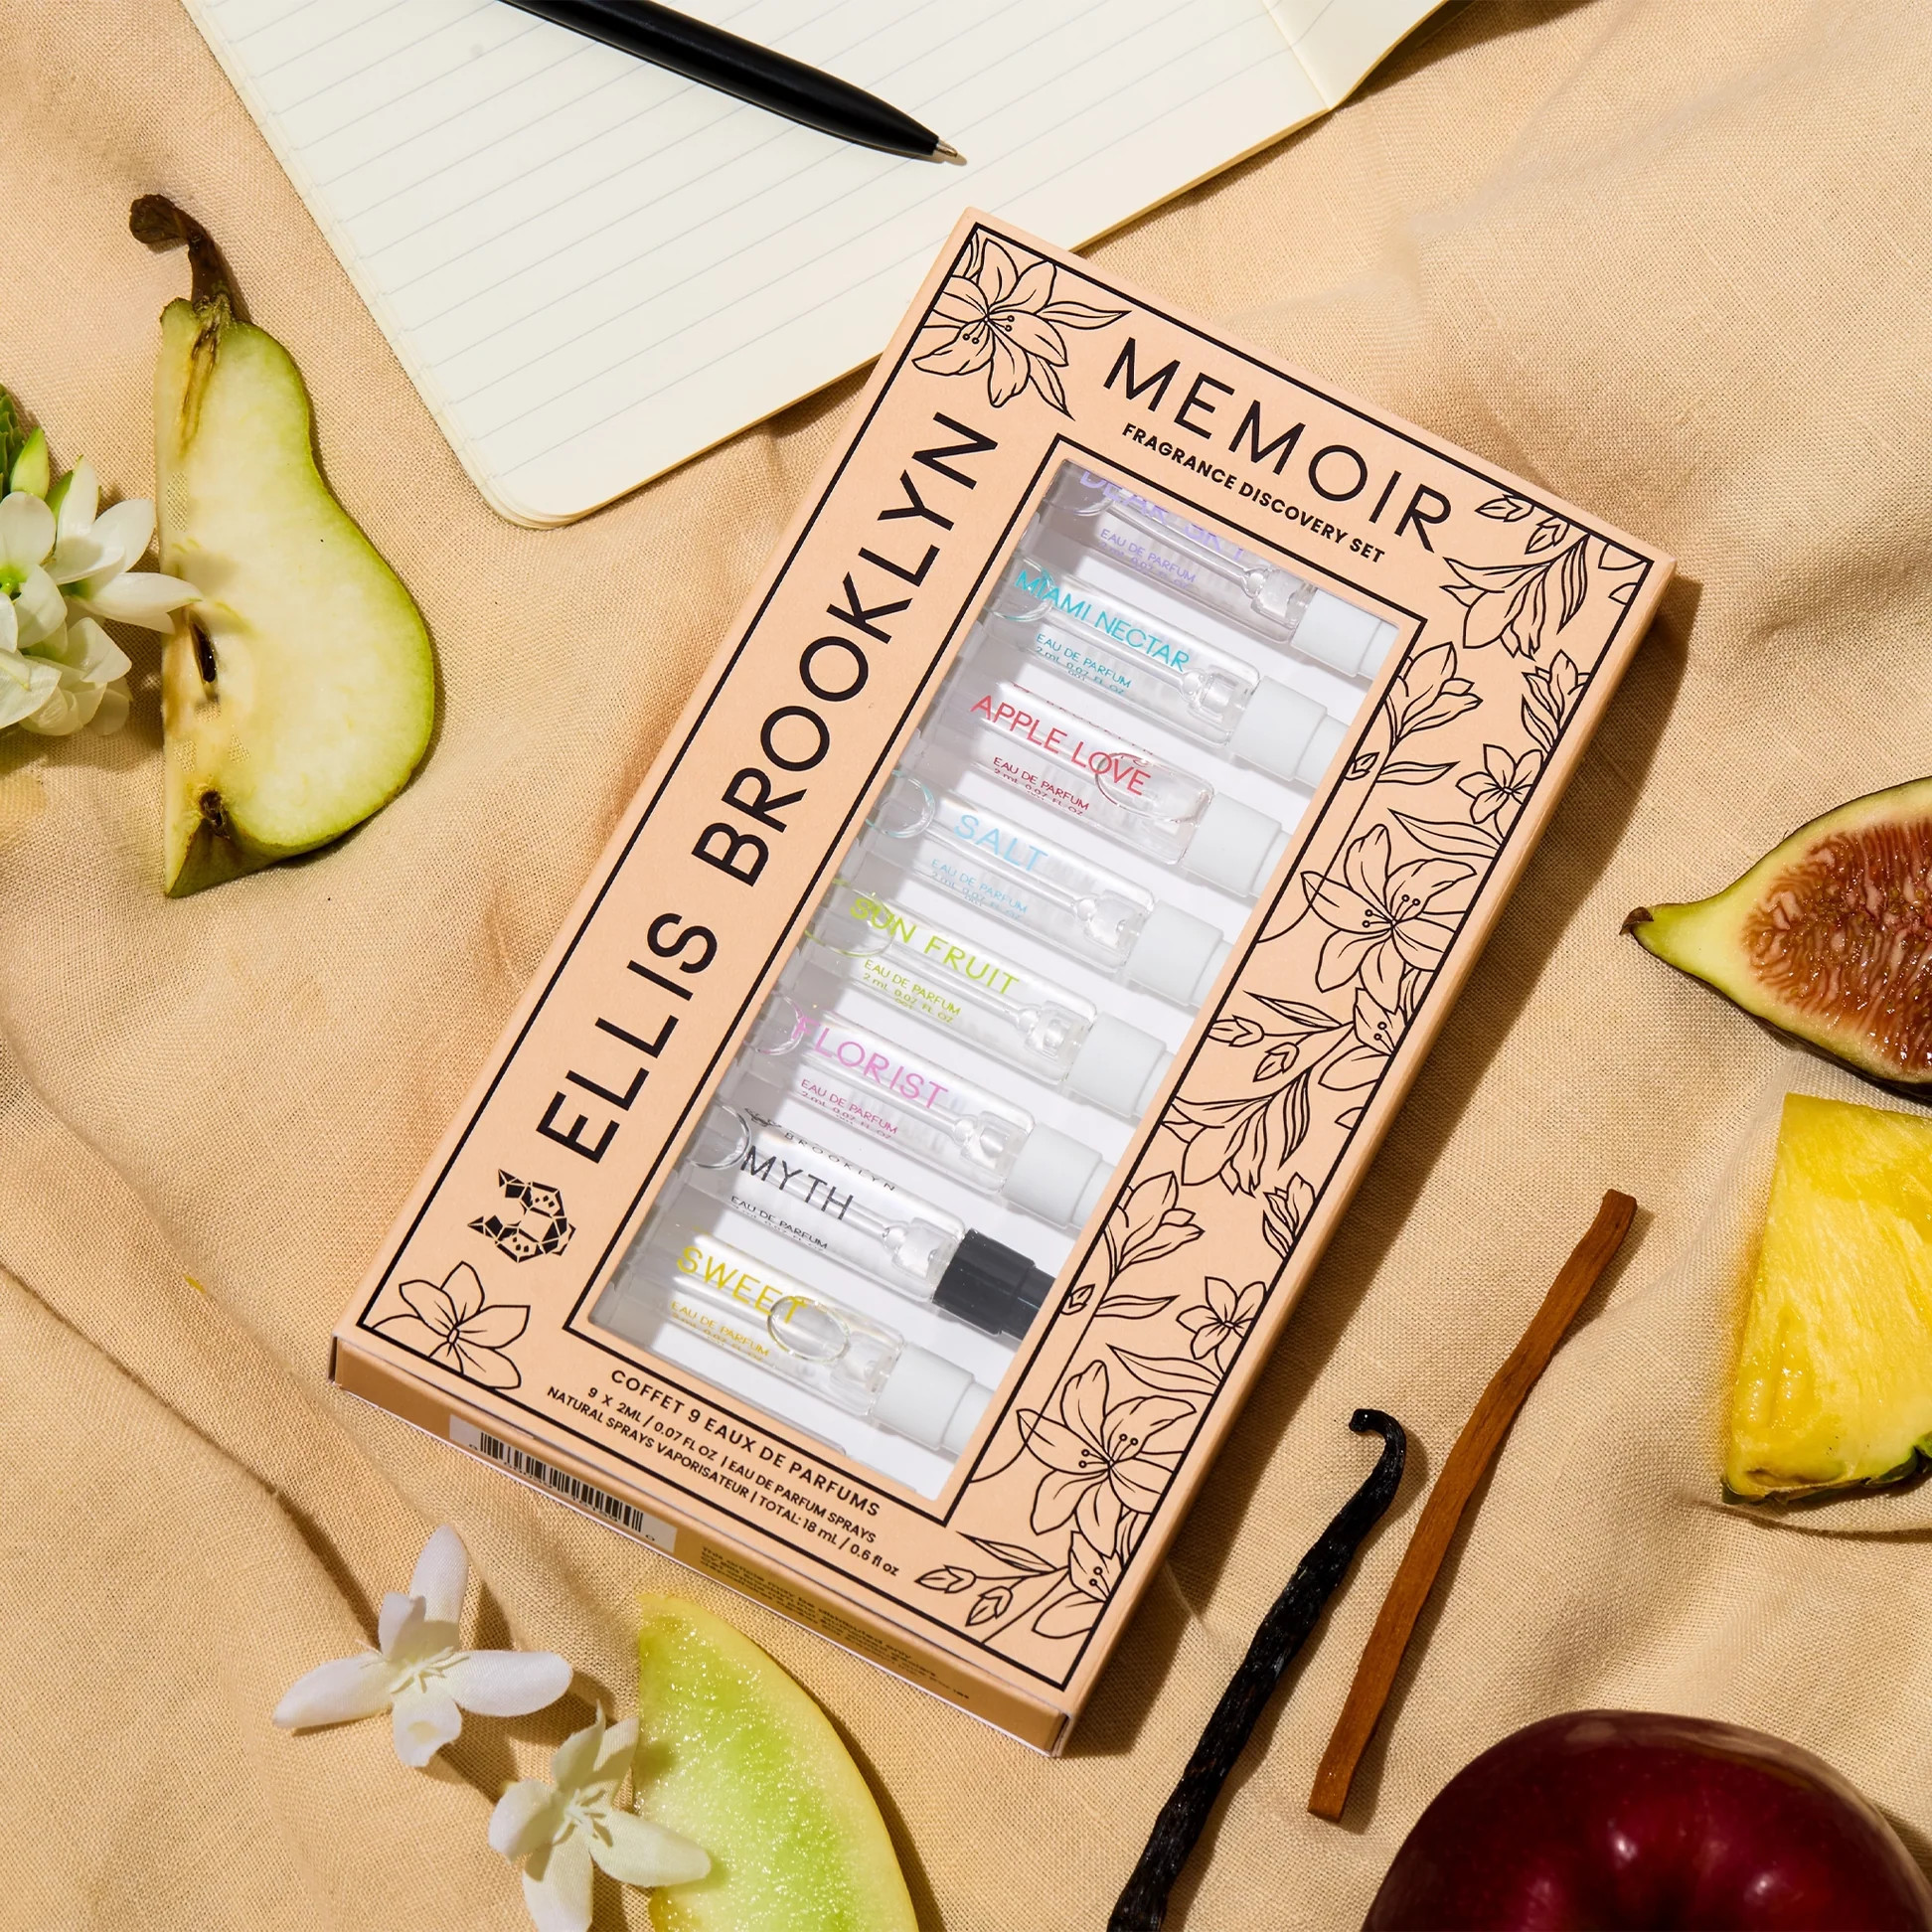 MEMOIR
FRAGRANCE DISCOVERY SET
ELLIS BROOKLYN
EAU DE PARFUM
MIAMI NECTAR
EAU DE PARFUM
2 mL 0.07 FL OZ
APPLE LOVE
EAU DE PARFUM
2 mL 0.07 FL OZ
SALT
EAU DE PARFUM
2 mL 0.07 FL OZ
SUN FRUIT
EAU DE PARFUM
2 mL 0.07 FL OZ
FLORIST
EAU DE PARFUM
2 mL 0.07 FL OZ
BROOKLYN
MYTH
EAU DE PARFUM
SWEET
EAU DE PARFUM
COFFET 9 EAUX DE PARFUMS
9 X 2ML / 0.07 FL OZ | EAU DE PARFUM SPRAYS
NATURAL SPRAYS VAPORISATEUR | TOTAL: 18 mL / 0.6 fl oz